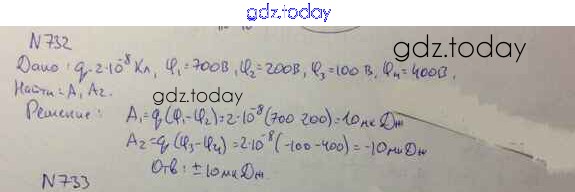 gdz.today
N732
Дано: q=2·10⁻⁸ Кл, φ₁=700В, φ₂=200В, φ₃=100 В, φ₄=400В.
gdz.today
Найти: A₁ A₂.
gdz.today
Решение: A₁=q(φ₁-φ₂)=2·10⁻⁸(700 200)=10мкДж
A₂=q(φ₃-φ₄)=2·10⁻⁸(-100-400)=-10мкДж
Отв: ±10мкДж.
N733